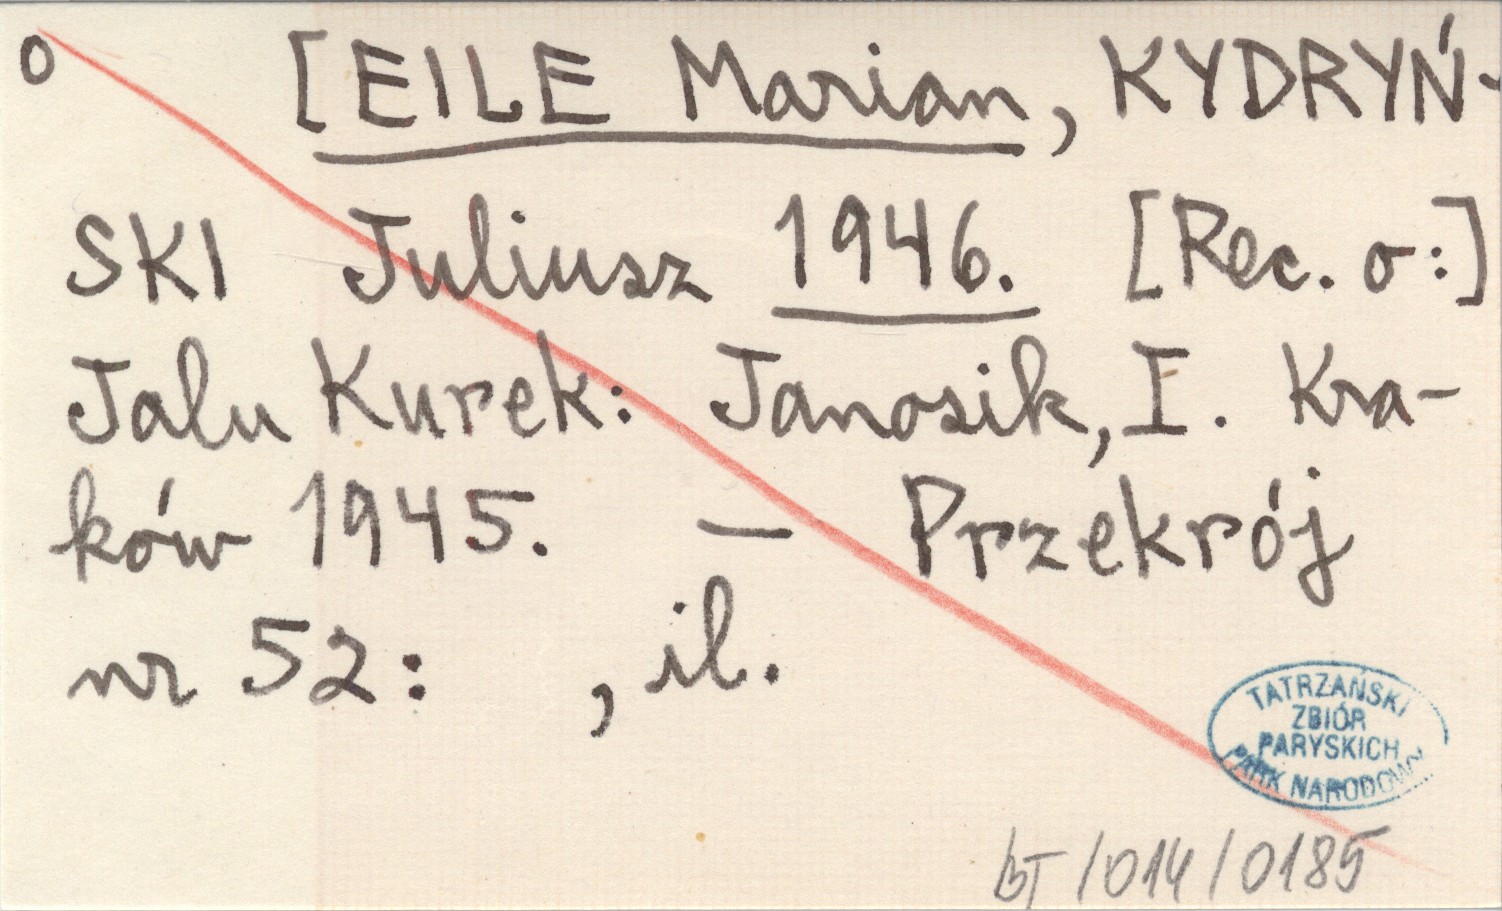 o [EILE Marian, KYDRYŃ-
SKI Juliusz 1946. [Rec. o:]
Jalu Kurek: Janosik, I. Kra-
ków 1945. — Przekrój
nr 52: , il.
TATRZAŃSKI
ZBIÓR
PARYSKICH
PARK NARODOWY
BT/014/0185